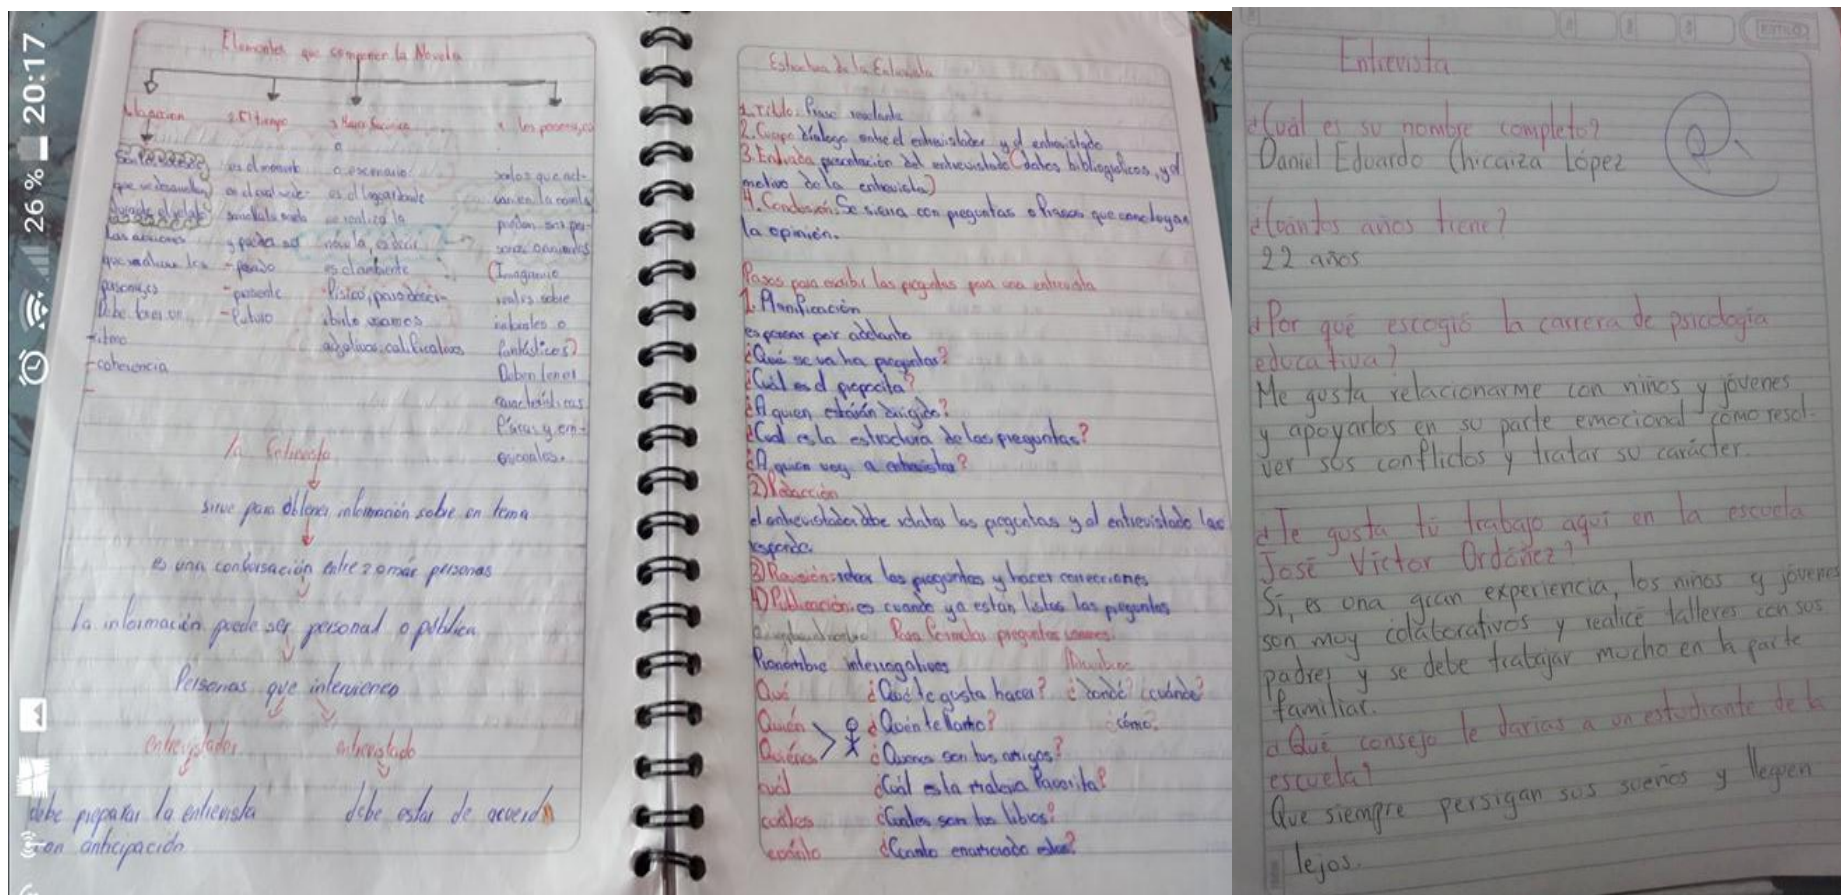 26 % 20:17
Elementos que componen la Novela
La accion
2 El tiempo
4 los personajes
o
es el moment
o escenario
que se desarrollan
es el lugar donde
durante el relato
se realiza la
las acciones
y puede ser
novela, es decir
que realizan los
- pasado
es el ambiente
(Imaginario
personajes
- presente
físico, para descri-
reales sobre
Debe tener un
- futuro
birlo usamos
naturales o
- ritmo
adjetivos calificativos
fantásticos)
- coherencia
Deben tener
-
características
físicas y em-
ocionales.
la Entrevista
sirve para obtener información sobre un tema
es una conversación entre 2 o más personas
la información puede ser personal o pública
Personas que intervienen
entrevistador
entrevistado
debe preparar la entrevista
con anticipación
debe estar de acuerdo
Estructura de la Entrevista
1. Titulo: frase
2. Cuerpo diálogo entre el entrevistador y el entrevistado
3. Entrada presentación del entrevistado (datos bibliográficos, y el
motivo de la entrevista)
4. Conclusión: Se cierra con preguntas o frases que concluyan
la opinión.
Pasos para escribir las preguntas para una entrevista
1. Planificación
es pensar por adelanto
¿Qué se va ha preguntas?
¿Cuál es el propocita?
¿A quien estarán dirigido?
¿Cual es la estructura de las preguntas?
¿A quien voy a entrevistar?
2) Redacción
el entrevistador debe redatar las preguntas y el entrevistado las
responde.
3) Revisión: releer las preguntas y hacer correcciones
4) Publicación: es cuando ya están listas las preguntas
Para formular preguntas usamos:
Pronombre interrogativos
Qué
¿Qué te gusta hacer? ¿donde? ¿cuándo?
Quién
¿Quién te llamo?
¿cómo?
Quiénes
¿Quienes son tus amigos?
cuál
¿Cuál es la materia favorita?
cuáles
¿Cuales son tus libros?
cuánto
¿Cuanto
Entrevista
¿Cuál es su nombre completo?
Daniel Eduardo Chicaiza López
¿Cuántos años tiene?
22 años
¿Por qué escogió la carrera de psicología
educativa?
Me gusta relacionarme con niños y jóvenes
y apoyarlos en su parte emocional como resol-
ver sus conflictos y tratar su carácter.
¿Te gusta tú trabajo aquí en la escuela
José Víctor Ordóñez?
Sí, es una gran experiencia, los niños y jóvenes
son muy colaborativos y realicé talleres con sus
padres y se debe trabajar mucho en la parte
familiar.
¿Qué consejo le darías a un estudiante de la
escuela?
Que siempre persigan sus sueños y lleguen
lejos.